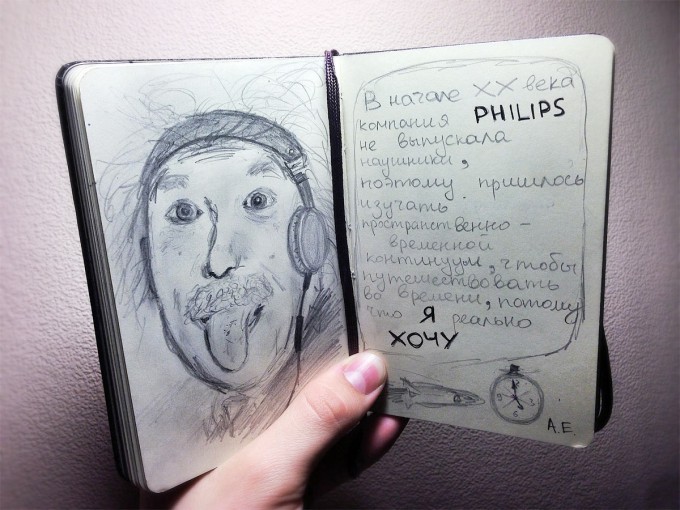 В начале XX века
компания PHILIPS
не выпускала
наушники,
поэтому пришлось
изучать
пространственно –
временной
континуум, чтобы
путешествовать
во времени, потому
что Я реально
ХОЧУ
9 3
6
A.E.